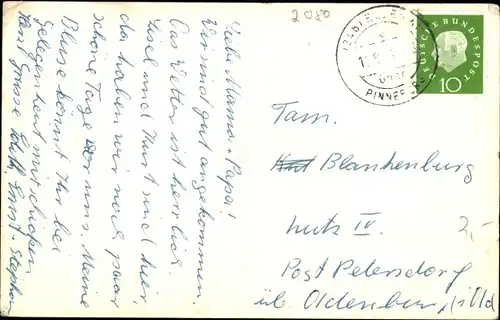 2080
Liebe Mama + Papa!
Wir sind gut angekommen.
Das Wetter ist herrlich.
Susel und Kurt sind hier,
da haben wir noch paar
schöne Tage vor uns. Meine
Bluse könnt Ihr bei
Gelegenheit mitschicken
Herzl. Grüsse Edith Ernst-Stephan
PINNEBERG
DEUTSCHE BUNDESPOST
10
Fam.
Kurt Blankenburg
Lutz IV.
2,-
Post Petersdorf
üb. Oldenburg i/Old